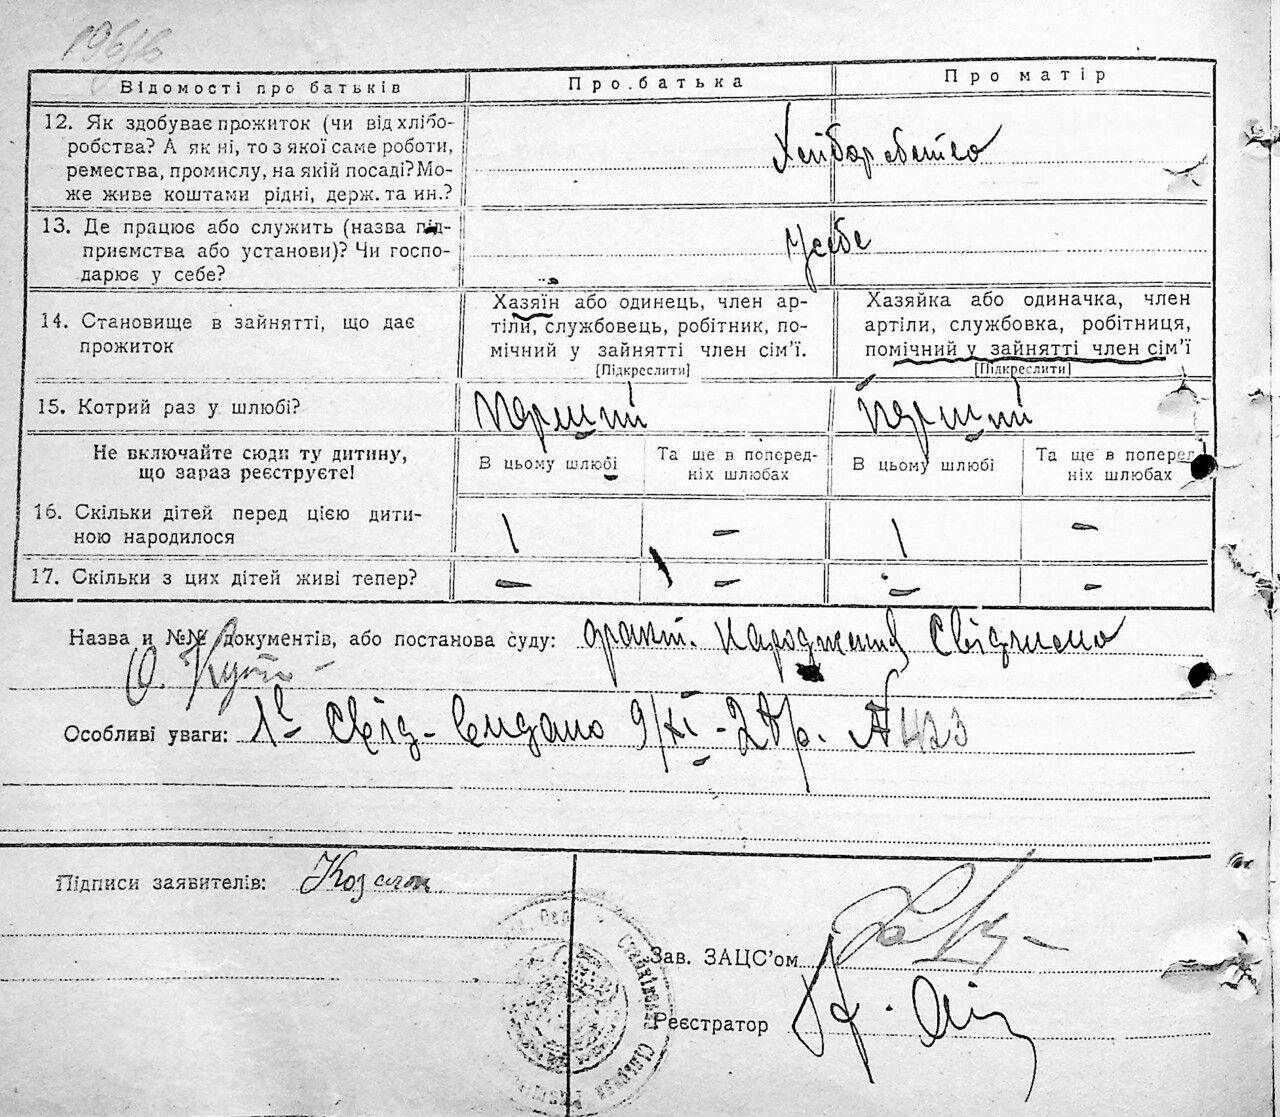 Відомості про батьків
Про батька
Про матір
12. Як здобуває прожиток (чи від хлібо-
робства? А як ні, то з якої саме роботи,
ремества, промислу, на якій посаді? Мо-
же живе коштами рідні, держ. та ин.?
13. Де працює або служить (назва під-
приємства або установи)? Чи госпо-
дарює у себе?
У себе
14. Становище в зайнятті, що дає
прожиток
Хазяїн або одинець, член ар-
тіли, службовець, робітник, по-
мічний у зайнятті член сім'ї.
[Підкреслити]
Хазяйка або одиначка, член
артіли, службовка, робітниця,
помічний у зайнятті член сім'ї
[Підкреслити]
15. Котрий раз у шлюбі?
перший
перший
Не включайте сюди ту дитину,
що зараз реєструєте!
В цьому шлюбі
Та ще в поперед-
ніх шлюбах
В цьому шлюбі
Та ще в поперед
ніх шлюбах
16. Скільки дітей перед цією дити-
ною народилося
1 — 1 —
17. Скільки з цих дітей живі тепер?
— — — —
Назва и №№ документів, або постанова суду: факт. народження
Особливі уваги: Свід. видано 9/XI - 28 р. № 423
Підписи заявителів: Козачок
Зав. ЗАЦС'ом
Реєстратор